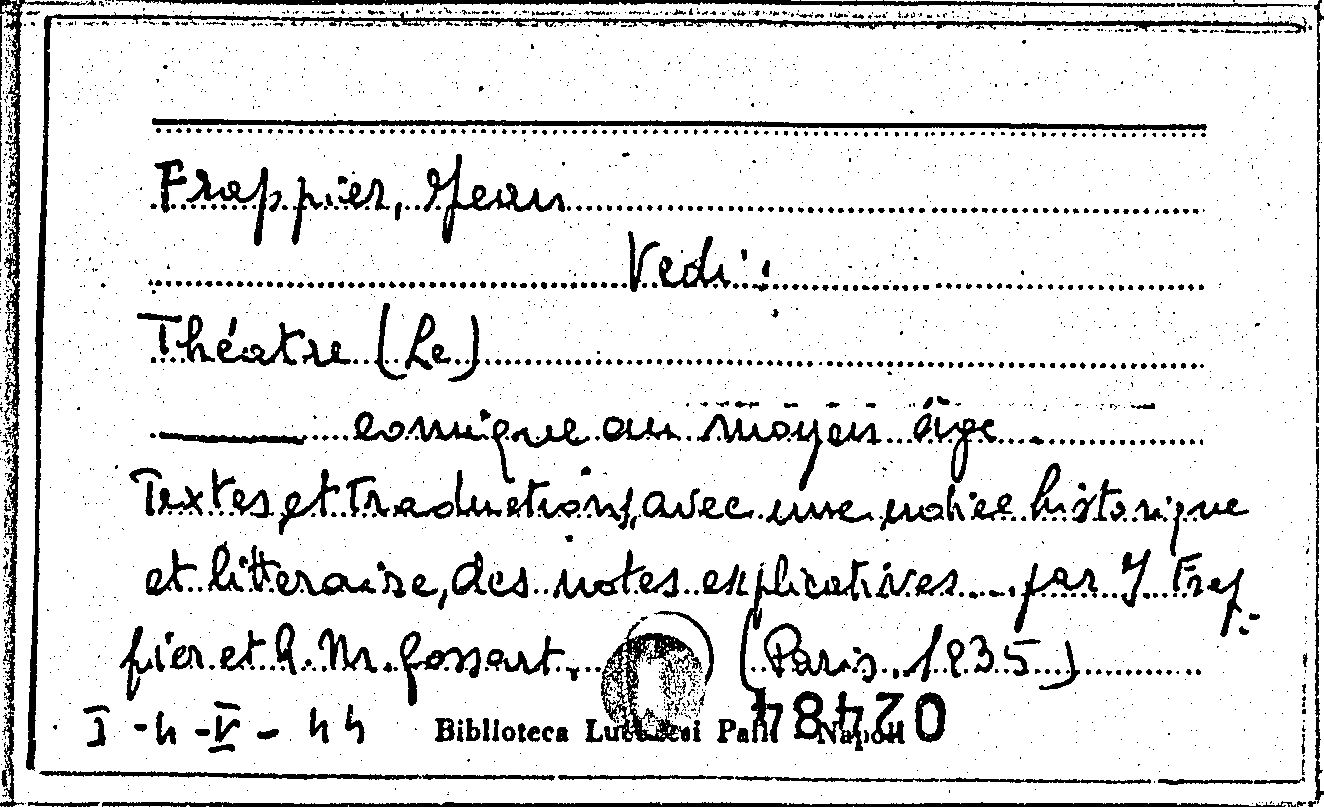 Frappier, Jean
Vedi:
Théatre (Le)
——— comique au moyen âge
Textes et traductions, avec une notice historique
et litteraire, des notes explicatives.... par J. Frap-
pier et A. M. Gossart. (Paris, 1935)
I-4-V-44 Biblioteca Lucchesi Palli Napoli
02484